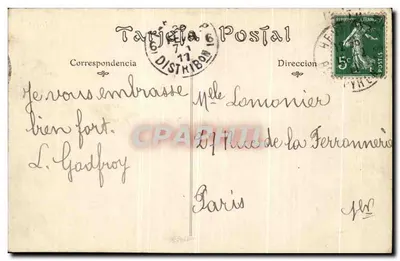 Tarjeta Postal
Correspondencia
Direccion
DISTRIBON
5c
POSTES
Je vous embrasse
bien fort.
L. Godfroy
Mlle Lemonier
27 Rue de la Ferronnerie
Paris
CPARAMA